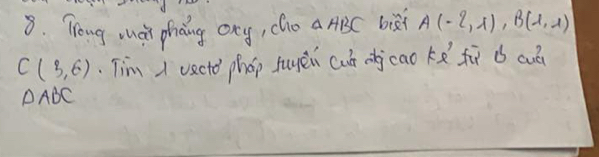 8. Trong mặt phẳng Oxy, cho △ABC biết A(-2,1), B(1,1)
C(3,6). Tìm 1 vectơ pháp tuyến của đg cao kẻ từ B của
△ABC